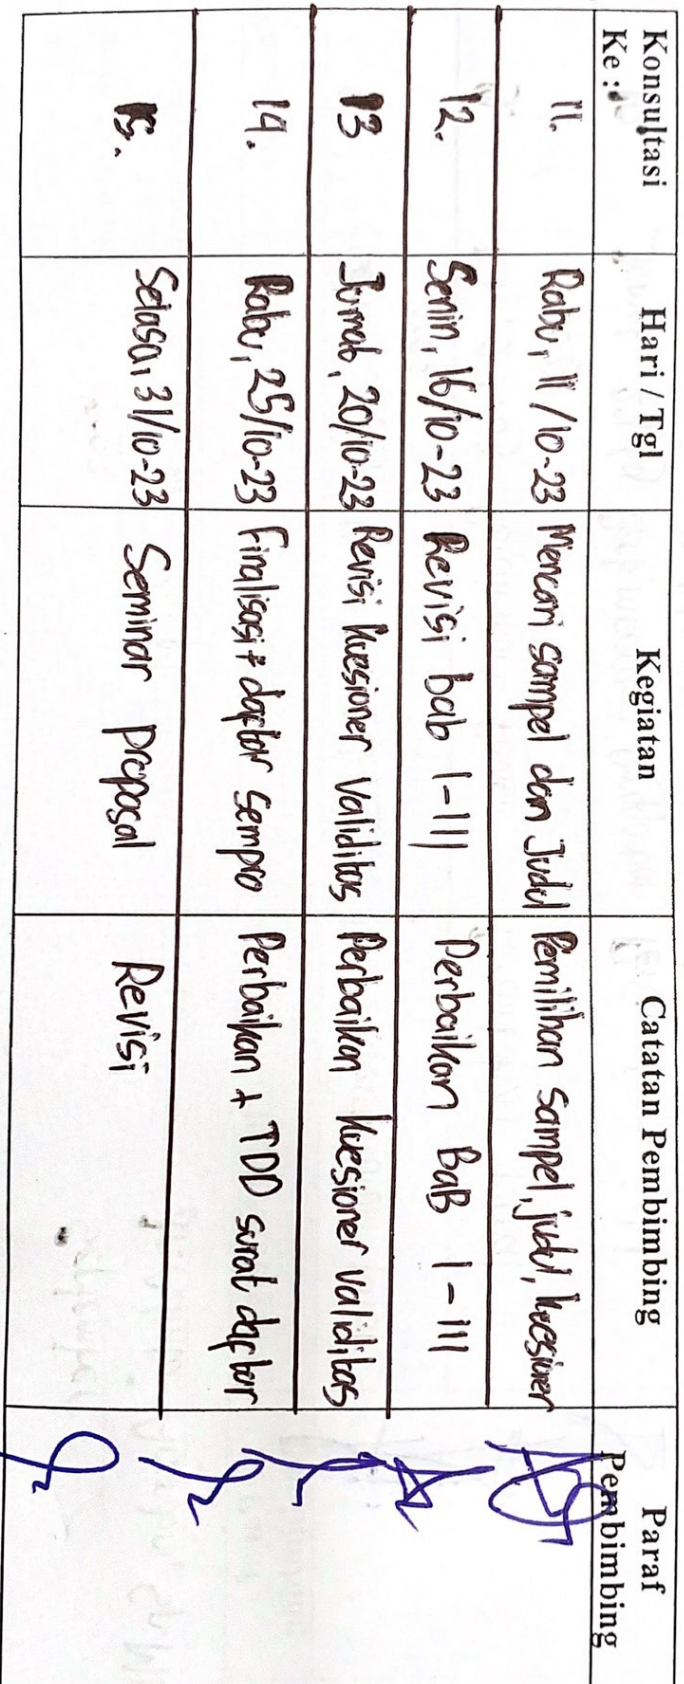 Konsultasi Ke : Hari / Tgl Kegiatan Catatan Pembimbing Paraf Pembimbing
11. Rabu, 11/10-23 Mencari sampel dan Judul Pemilihan sampel, judul, kuesioner
12. Senin, 16/10-23 Revisi bab I-III Perbaikan BaB I-III
13 Jumat, 20/10-23 Revisi kuesioner validitas Perbaikan kuesioner validitas
14. Rabu, 25/10-23 Finalisasi + daftar sempro Perbaikan + TDD surat daftar
15. Selasa, 31/10-23 Seminar proposal Revisi